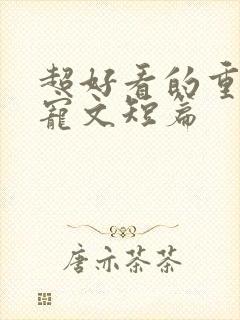 超好看的重
宠文短篇
唐亦茶茶